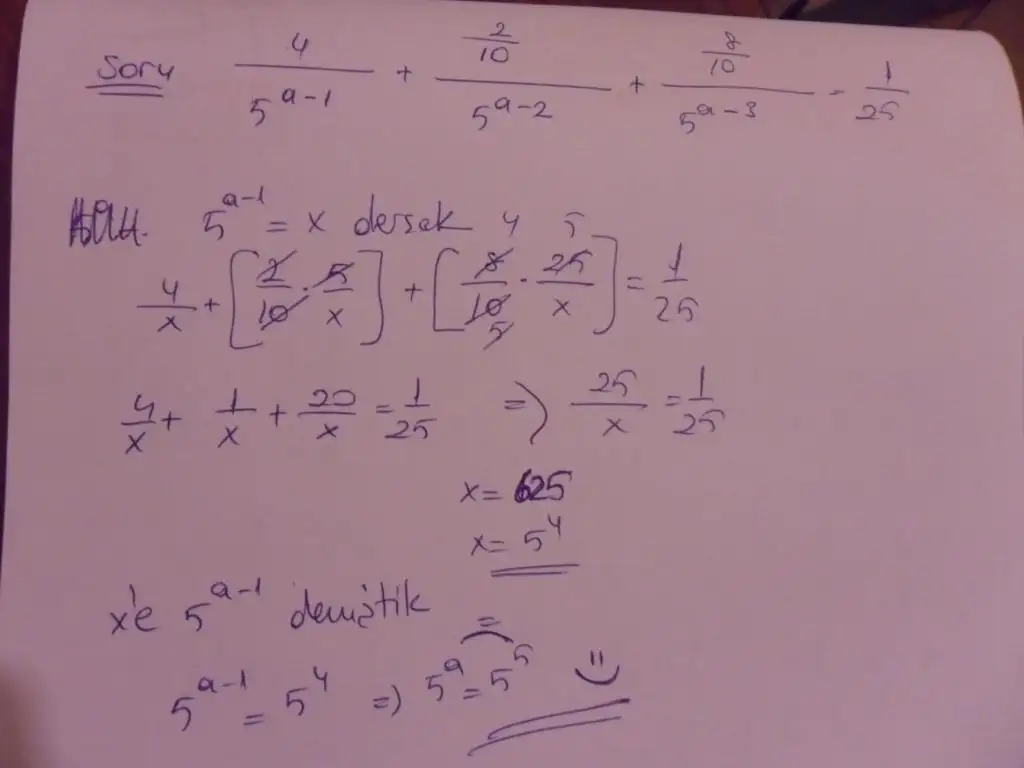 Soru 4/5^(a-1) + (2/10)/5^(a-2) + (8/10)/5^(a-3) = 1/25
5^(a-1) = x dersek
4/x + [2/10 . 5/x] + [8/10 . 25/x] = 1/25
4/x + 1/x + 20/x = 1/25 => 25/x = 1/25
x = 625
x = 5^4
x'e 5^(a-1) demiştik
5^(a-1) = 5^4 => 5^a = 5^5